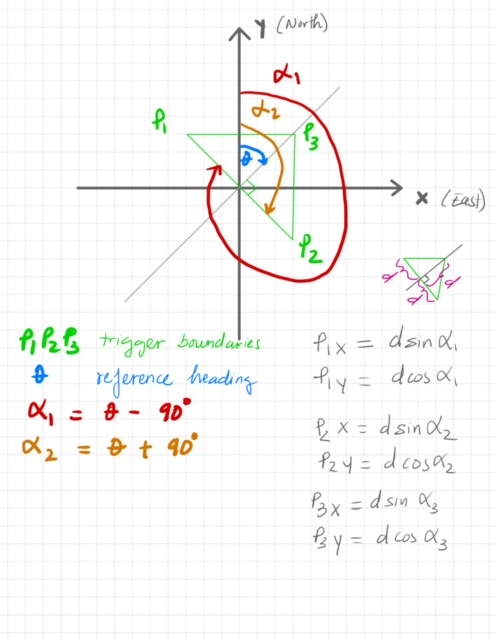 Y (North)
α1
α2
P1
P3
θ
X (East)
P2
d
d
P1 P2 P3 trigger boundaries
θ reference heading
α1 = θ - 90°
α2 = θ + 90°
P1x = d sin α1
P1y = d cos α1
P2x = d sin α2
P2y = d cos α2
P3x = d sin α3
P3y = d cos α3